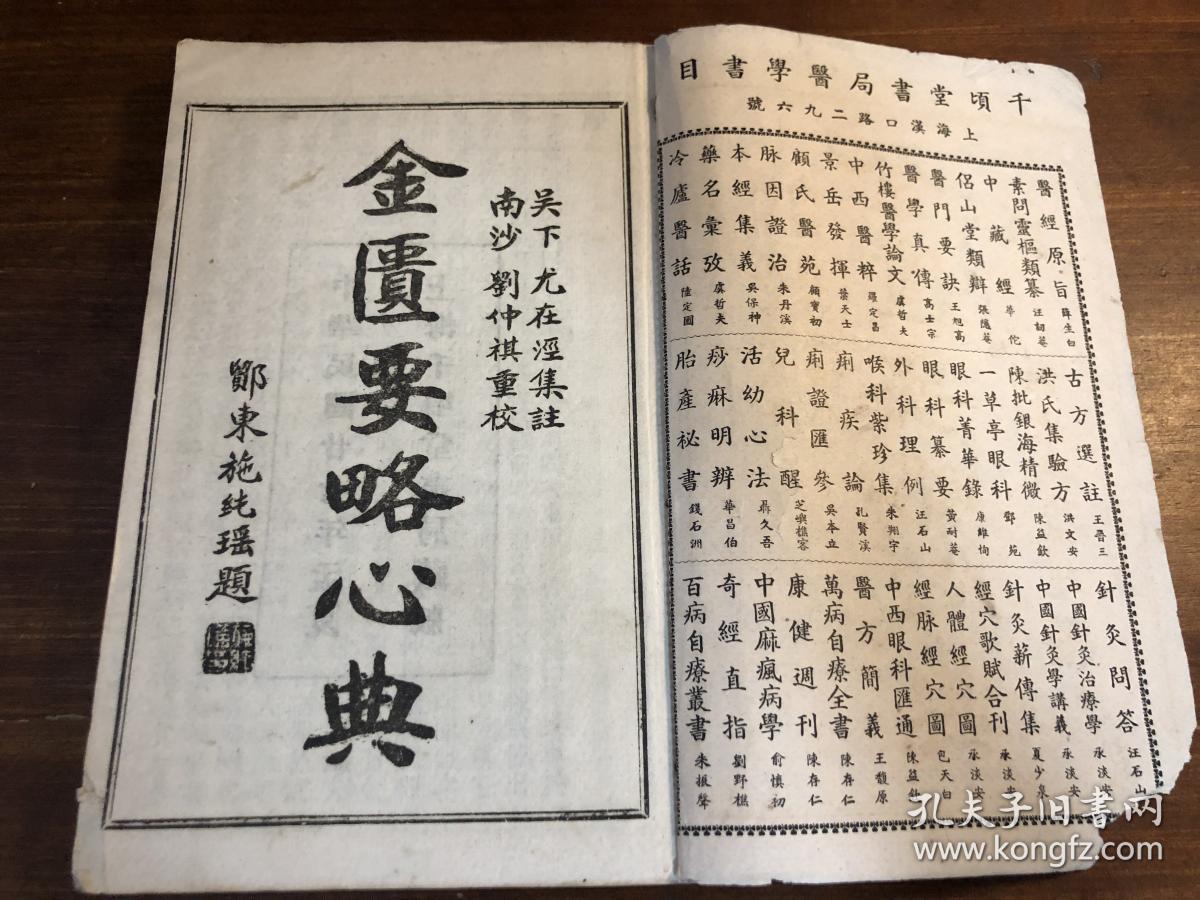 千頃堂書局醫學書目
上海漢口路二九六號
醫經原旨 薛生白
素問靈樞類纂 汪訒菴
中藏經 華佗
侶山堂類辯 張隱菴
醫門要訣 王旭高
醫學真傳 高士宗
竹樓醫學論文 虞哲夫
中西醫粹 羅定昌
景岳發揮 葉天士
顧氏醫苑 顧寶初
脉因證治 朱丹溪
本經集義 吳保神
藥名彙攷 虞哲夫
冷廬醫話 陸定圃
古方選註 王晋三
洪氏集驗方 洪文安
陳批銀海精微 陳益欽
一草亭眼科 鄧苑
眼科菁華錄 康維恂
眼科纂要 黃耐菴
外科理例 汪石山
喉科紫珍集 朱翔宇
痢疾論 孔賢溪
痢證匯參 吳本立
兒科醒 芝嶼樵客
活幼心法 聶久吾
痧麻明辨 華昌伯
胎產秘書 錢石洲
針灸問答 汪石山
中國針灸治療學 承淡安
中國針灸學講義 承淡安
針灸薪傳集 夏少泉
經穴歌賦合刊 承淡安
人體經穴圖 承淡安
經脉經穴圖 包天白
中西眼科匯通 陳益釺
醫方簡義 王馥原
萬病自療全書 陳存仁
康健週刊 陳存仁
中國麻瘋病學 俞慎初
奇經直指 劉野樵
百病自療叢書 朱振聲
吳下 尤在涇集註
南沙 劉仲祺重校
金匱要略心典
鄮東施純瑶題
孔夫子旧书网
www.kongfz.com